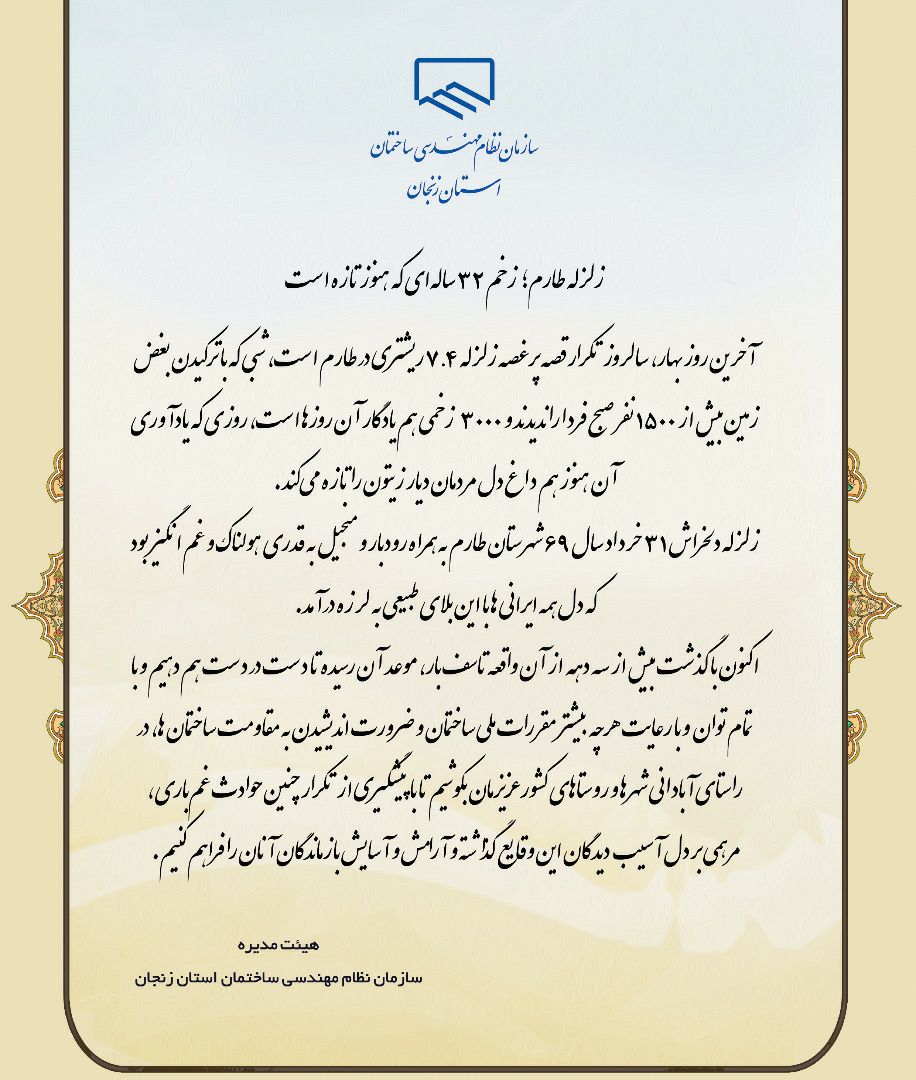 سازمان نظام مهندسی ساختمان
استان زنجان
زلزله طارم؛ زخم ۳۲ ساله ای که هنوز تازه است
آخرین روز بهار، سالروز تکرار قصه پرغصه زلزله ۷.۴ ریشتری در طارم است، شبی که با ترکیدن بغض
زمین بیش از ۱۵۰۰ نفر صبح فردا را ندیدند و ۳۰۰۰ زخمی هم یادگار آن روزها است، روزی که یادآوری
آن هنوز هم داغ دل مردمان دیار زیتون را تازه می‌کند.
زلزله دلخراش ۳۱ خرداد سال ۶۹ شهرستان طارم به همراه رودبار و منجیل به قدری هولناک و غم انگیز بود
که دل همه ایرانی ها با این بلای طبیعی به لرزه درآمد.
اکنون با گذشت بیش از سه دهه از آن واقعه تاسف بار، موعد آن رسیده تا دست در دست هم دهیم و با
تمام توان و با رعایت هرچه بیشتر مقررات ملی ساختمان و ضرورت اندیشیدن به مقاومت ساختمان ها، در
راستای آبادانی شهرها و روستاهای کشور عزیزمان بکوشیم تا با پیشگیری از تکرار چنین حوادث غم باری،
مرهمی بر دل آسیب دیدگان این وقایع گذشته و آرامش و آسایش بازماندگان آنان را فراهم کنیم.
هیئت مدیره
سازمان نظام مهندسی ساختمان استان زنجان